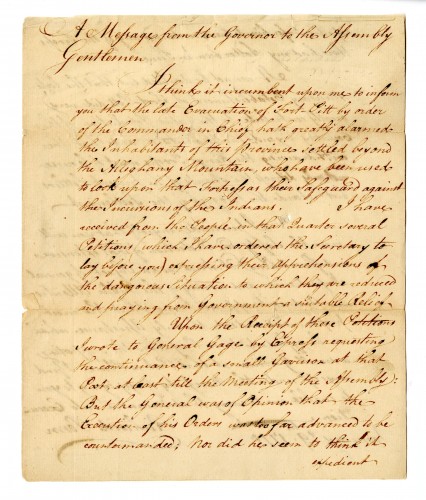 A Message from the Governor to the Assembly
Gentlemen
I think it incumbent upon me to inform
you that the late Evacuation of Fort Pitt by order
of the Commander in Chief hath greatly alarmed
the Inhabitants of this Province settled beyond
the Alleghany Mountain, who have been used
to look upon that Fortress as their Safeguard against
the Incursions of the Indians. I have
received from the People in that Quarter several
Petitions, (which I have ordered the Secretary to
lay before you) expressing their apprehensions of
the dangerous situation to which they are reduced
and praying from Government a suitable Relief.
Upon the Receipt of those Petitions
I wrote to General Gage by Express requesting
the continuance of a small Garrison at that
Post, at least till the Meeting of the Assembly;
But the General was of Opinion that the
Execution of his Orders was too far advanced to be
countermanded; Nor did he seem to think it
expedient